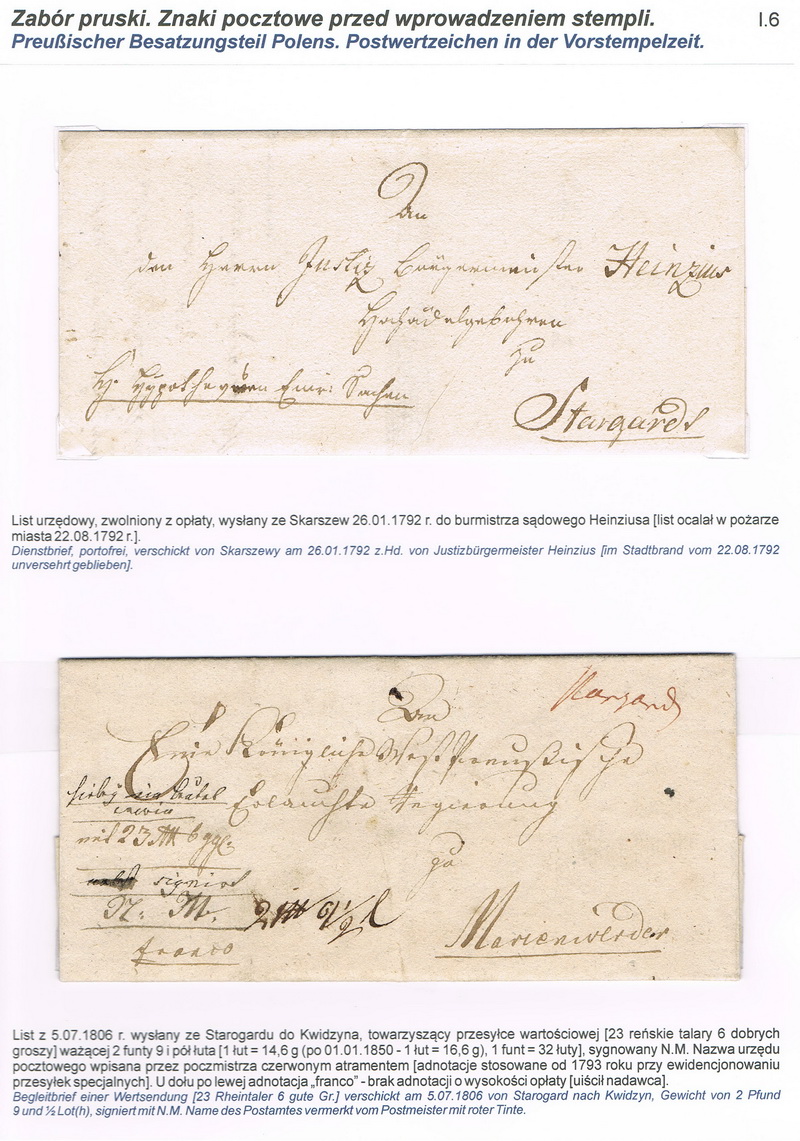 Zabór pruski. Znaki pocztowe przed wprowadzeniem stempli.
I.6
Preußischer Besatzungsteil Polens. Postwertzeichen in der Vorstempelzeit.
An
den Herrn Justiz Bürgermeister Heinzius
Hochädelgebohren
zu
H. Hypothequen Sachen
Stargardt
List urzędowy, zwolniony z opłaty, wysłany ze Skarszew 26.01.1792 r. do burmistrza sądowego Heinziusa [list ocalał w pożarze
miasta 22.08.1792 r.].
Dienstbrief, portofrei, verschickt von Skarszewy am 26.01.1792 z.Hd. von Justizbürgermeister Heinzius [im Stadtbrand vom 22.08.1792
unversehrt geblieben].
Stargard
An
Eine Königliche West Preußische
hiebey ein Beutel
Erlauchte Regierung
mit 23 6 ggl.
zu
signirt
N. M.
2 9½ l
Marienwerder
franco
List z 5.07.1806 r. wysłany ze Starogardu do Kwidzyna, towarzyszący przesyłce wartościowej [23 reńskie talary 6 dobrych
groszy] ważącej 2 funty 9 i pół łuta [1 łut = 14,6 g (po 01.01.1850 - 1 łut = 16,6 g), 1 funt = 32 łuty], sygnowany N.M. Nazwa urzędu
pocztowego wpisana przez poczmistrza czerwonym atramentem [adnotacje stosowane od 1793 roku przy ewidencjonowaniu
przesyłek specjalnych]. U dołu po lewej adnotacja „franco” - brak adnotacji o wysokości opłaty [uiścił nadawca].
Begleitbrief einer Wertsendung [23 Rheintaler 6 gute Gr.] verschickt am 5.07.1806 von Starogard nach Kwidzyn, Gewicht von 2 Pfund
9 und ½ Lot(h), signiert mit N.M. Name des Postamtes vermerkt vom Postmeister mit roter Tinte.